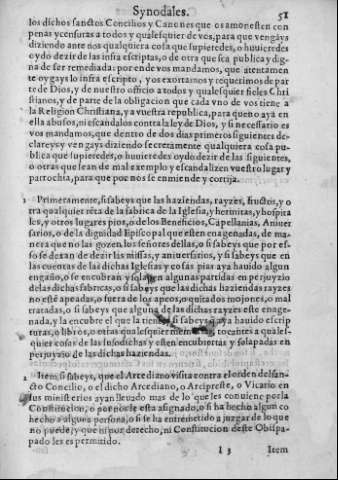 Synodales. 51
los dichos sanctos Concilios y Canones que os amonesten con
penas y censuras a todos y qualesquier de vos, para que vengays
diziendo ante nos qualquiera cosa que supieredes, o huuieredes
oydo dezir de las infra escriptas, o de otra que sea publica y dig-
na de ser remediada: por ende vos mandamos, que atentamen
te oygays lo infra escripto, y os exortamos y requerimos de par
te de Dios, y de nuestro officio a todos y qualesquier fieles Chri
stianos, y de parte de la obligacion que cada vno de vos tiene a
la Religion Christiana, y a vuestra republica, para que no aya en
ella abusos, ni escandalos contra la ley de Dios, y si necessario es
vos mandamos, que dentro de dos dias primeros siguientes de-
clareys y vengays diziendo secretamente qualquiera cosa pu-
blica que supieredes, o huuieredes oydo dezir de las siguientes,
o otras que sean de mal exemplo y escandalizen vuestro lugar y
parrochia, para que por nos se enmiende y corrija.
1 Primeramente, si sabeys que las haziendas, rayzes, fructos, y o
tra qualquier rēta de la fabrica de la Iglesia, y hermitas, y hospita
les, y otros lugares pios, o de los Beneficios, Capellanias, Aniuer
sarios, o de la dignidad Episcopal que esten enagenadas, de ma-
nera que no las gozen los señores dellas, o si sabeys que por es-
so se dexan de dezir las missas, y aniuersarios, y si sabeys que en
las cuentas de las dichas Iglesias y cosas pias aya hauido algun
engaño, o se encubran y solapen algunas partidas en perjuyzio
de las dichas fabricas, o si sabeys que las dichas haziendas rayzes
no esté apeadas, o fuera de los apeos, o quitados mojones, o mal
tratadas, o si sabeys que alguna de las dichas rayzes este enage-
nada, y la encubre el que la tiene, o si sabeys que aya hauido escrip
turas, o libros, o otras qualesquier tocantes a quales-
quier cosas de las susodichas y esten encubiertas y solapadas en
perjuyzio de las dichas haziendas.
2 Item, si sabeys, que el Arcediano visite contra el orden del san-
cto Concilio, o el dicho Arcediano, o Arcipreste, o Vicario en
sus ministerios ayan lleuado mas de lo que les conuiene por la
Constitucion, o por no le esta asignado, o si ha hecho algun co
hecho a alguna persona, o si se ha entremetido a juzgar de lo que
no puede, y que ni por derecho, ni Constitucion deste Obispa-
pado les es permitido.
I 3 Item